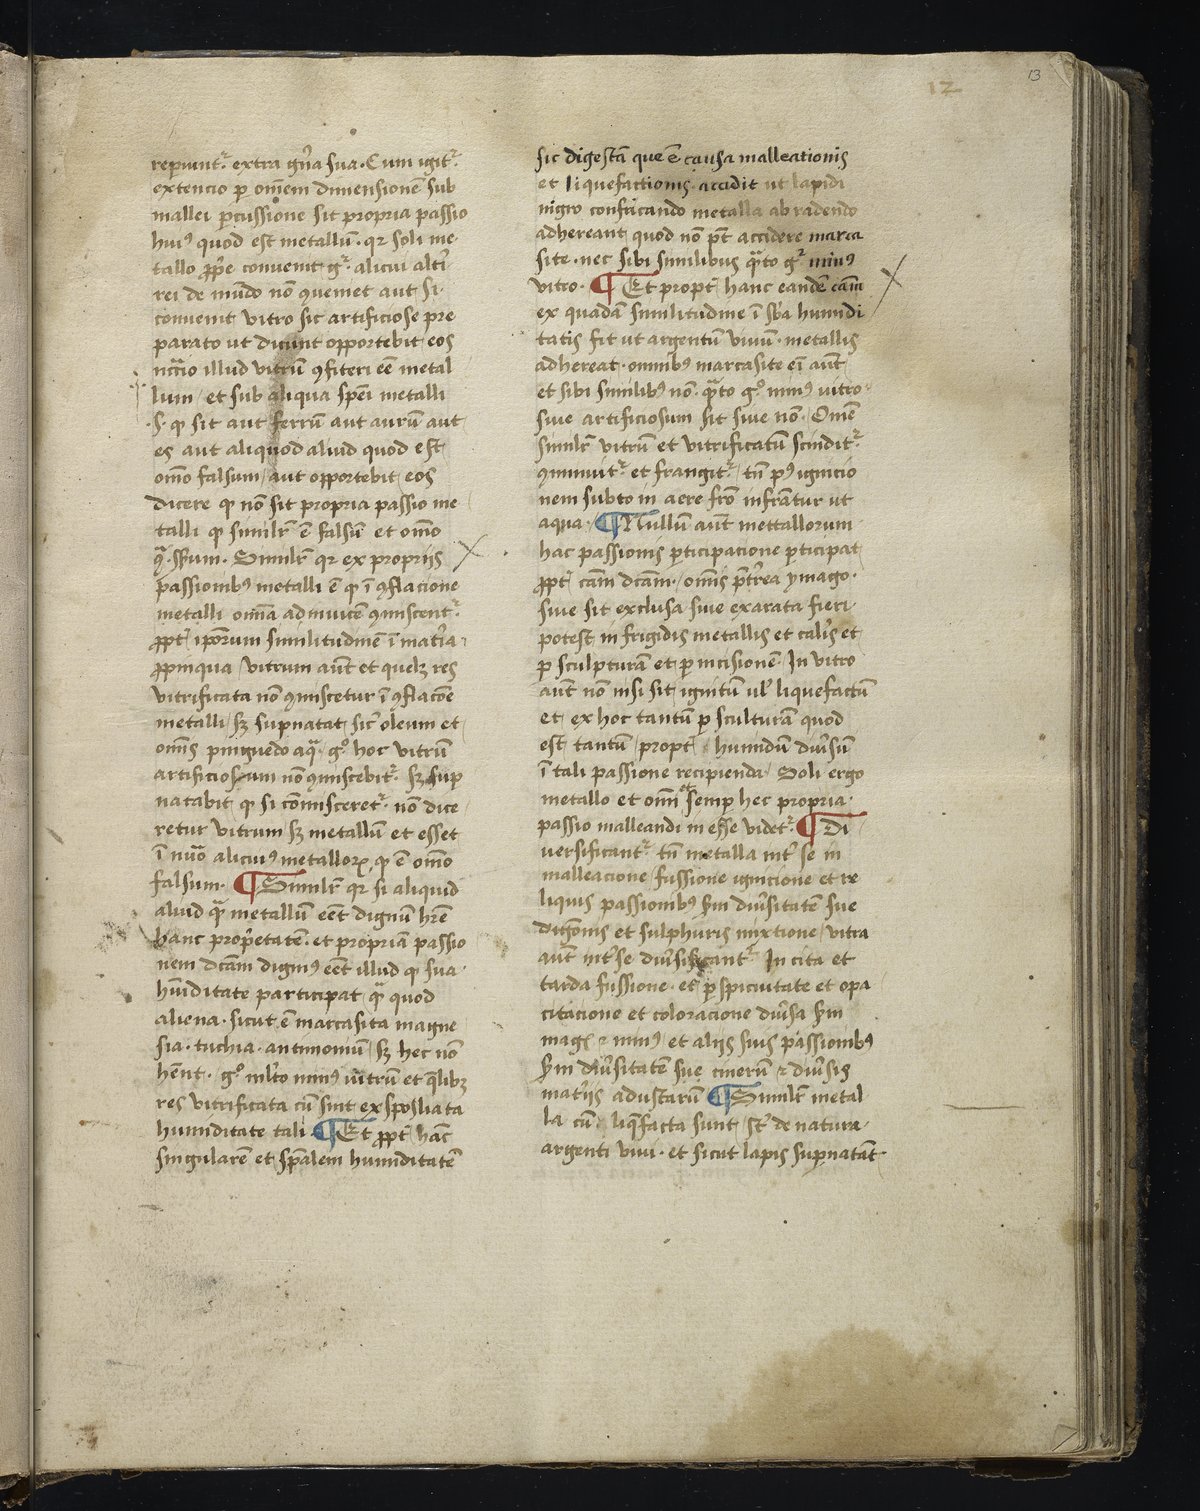 13
12
reperiunt᷑ extra gn̄a sua. Cum igit᷑
extencio ꝑ om̄em dimensionē sub
mallei ꝑcussione sit propria passio
huiꝰ quod est metallū. qꝛ soli me
tallo ꝓpͤ convenit gͬ. alicui altͥ
rei de mūdo nō ꝯuenit aut si
convenit vitro sic artificiose pre
parato ut dicunt opportebit eos
illud vitrū ꝯfiteri eē metal
lum / et sub aliqua spēi metalli
.s. ꝙ sit aut ferrū aut aurū aut
es aut aliquod aliud quod est
om̄o falsum / aut opportebit eos
dicere ꝙ nō sit propria passio me
talli ꝙ similr̄ ē falsū et om̄o
Similr̄ qꝛ ex propriis
passionibꝰ metalli ē ꝙ ī ꝯflacione
metalli omīa adinvicē ꝯmiscent᷑
ꝓpt᷑ ip̄orum similitudinē ī mat̄ia
ꝓpinqua / vitrum aūt et quelꝫ res
vitrificata nō ꝯmiscetur ī ꝯflac̄oe
metalli / sꝫ supnatat sic̄ oleum et
om̄is pinguedo aq̄. gͦ hoc vitrū
artificiosum nō ꝯmiscebit᷑. sꝫ suꝑ
natabit ꝙ si cōmisceret᷑ nō dice
retur vitrum / sꝫ metallū et esset
ī nūo aliciꝰ metalloꝝ ꝙ ē om̄o
falsum. ¶ Similr̄ qꝛ si aliquid
aliud qͣ metallū eēt dignū hr̄e
hanc propͥetatē. et propriā passio
nem dc̄am digniꝰ eēt illud ꝙ sua
hūiditate participat qͣ quod
aliena. sicut ē marcasita magne
sia. tuchia. antimoniū / sꝫ hec nō
hēnt. gͦ mlto minꝰ uitrū et qͣlibꝫ
res vitrificata cū sint exspoliata
humiditate tali. ¶ Et ꝓpt᷑ hāc
singularē et sp̄alem humiditatē
sic digestā que ē causa malleationis
et liquefactionis. accidit ut lapidi
nigro confricando metalla abradendo
adhereant quod nō pt̄ accidere marca
site. nec sibi similibus qͣto gͬ minꝰ
vitro. ¶ Et propt᷑ hanc eandē cām
ex quadā similitudine ī sb̄a humidi
tatis fit ut argentū vivū. metallis
adhereat. omnibꝰ marcasite eī aūt
et sibi similibꝰ nō. qͣto gͦ minꝰ uitro
sive artificiosum sit sive nō. Om̄e
similr̄ vitrū et vitrificatū scindit᷑
ꝯminuit᷑ et frangit᷑ / tn̄ pꝰ ignicio
nem subto in aere frō infrāntur ut
aqua. ¶ Nullū aūt mettallorum
hac passionis ꝑticipacione ꝑticipat
ꝓpt᷑ cām dc̄am. / om̄is pt̄rea ymago.
sive sit exclusa sive exarata fieri
potest in frigidis metallis et caliͩs et
ꝑ sculpturā et ꝑ incisionē. In vitro
aūt nō nisi sit ignitū uͤl liquefactū
et ex hoc tantū ꝑ sculturā quod
est tantū / propt᷑ humidū diūsū
ī tali passione recipienda / Soli ergo
metallo et omī et semꝑ hec propria
passio malleandi in esse videt᷑. ¶ Di
versificant᷑ tn̄ metalla int᷑ se in
malleacione / fussione ignicione et re
liquis passionibꝰ sm̄ diūsitatē sue
digōnis et sulphuris mixtione / vitra
aūt int᷑ se diūsificant᷑ In cita et
tarda fussione. et ꝑspicuitate et opa
citacione et coloracione diūsa sm̄
magꝭ ⁊ minꝰ et aliis suis passionibꝰ
sm̄ diūsitatē sue cinerū ⁊ diūsis
mat̄iis adustarū ¶ Similr̄ metal
la cū liq̄facta sunt / st̄ de natura
argenti vivi. et sicut lapis suꝑnatāt